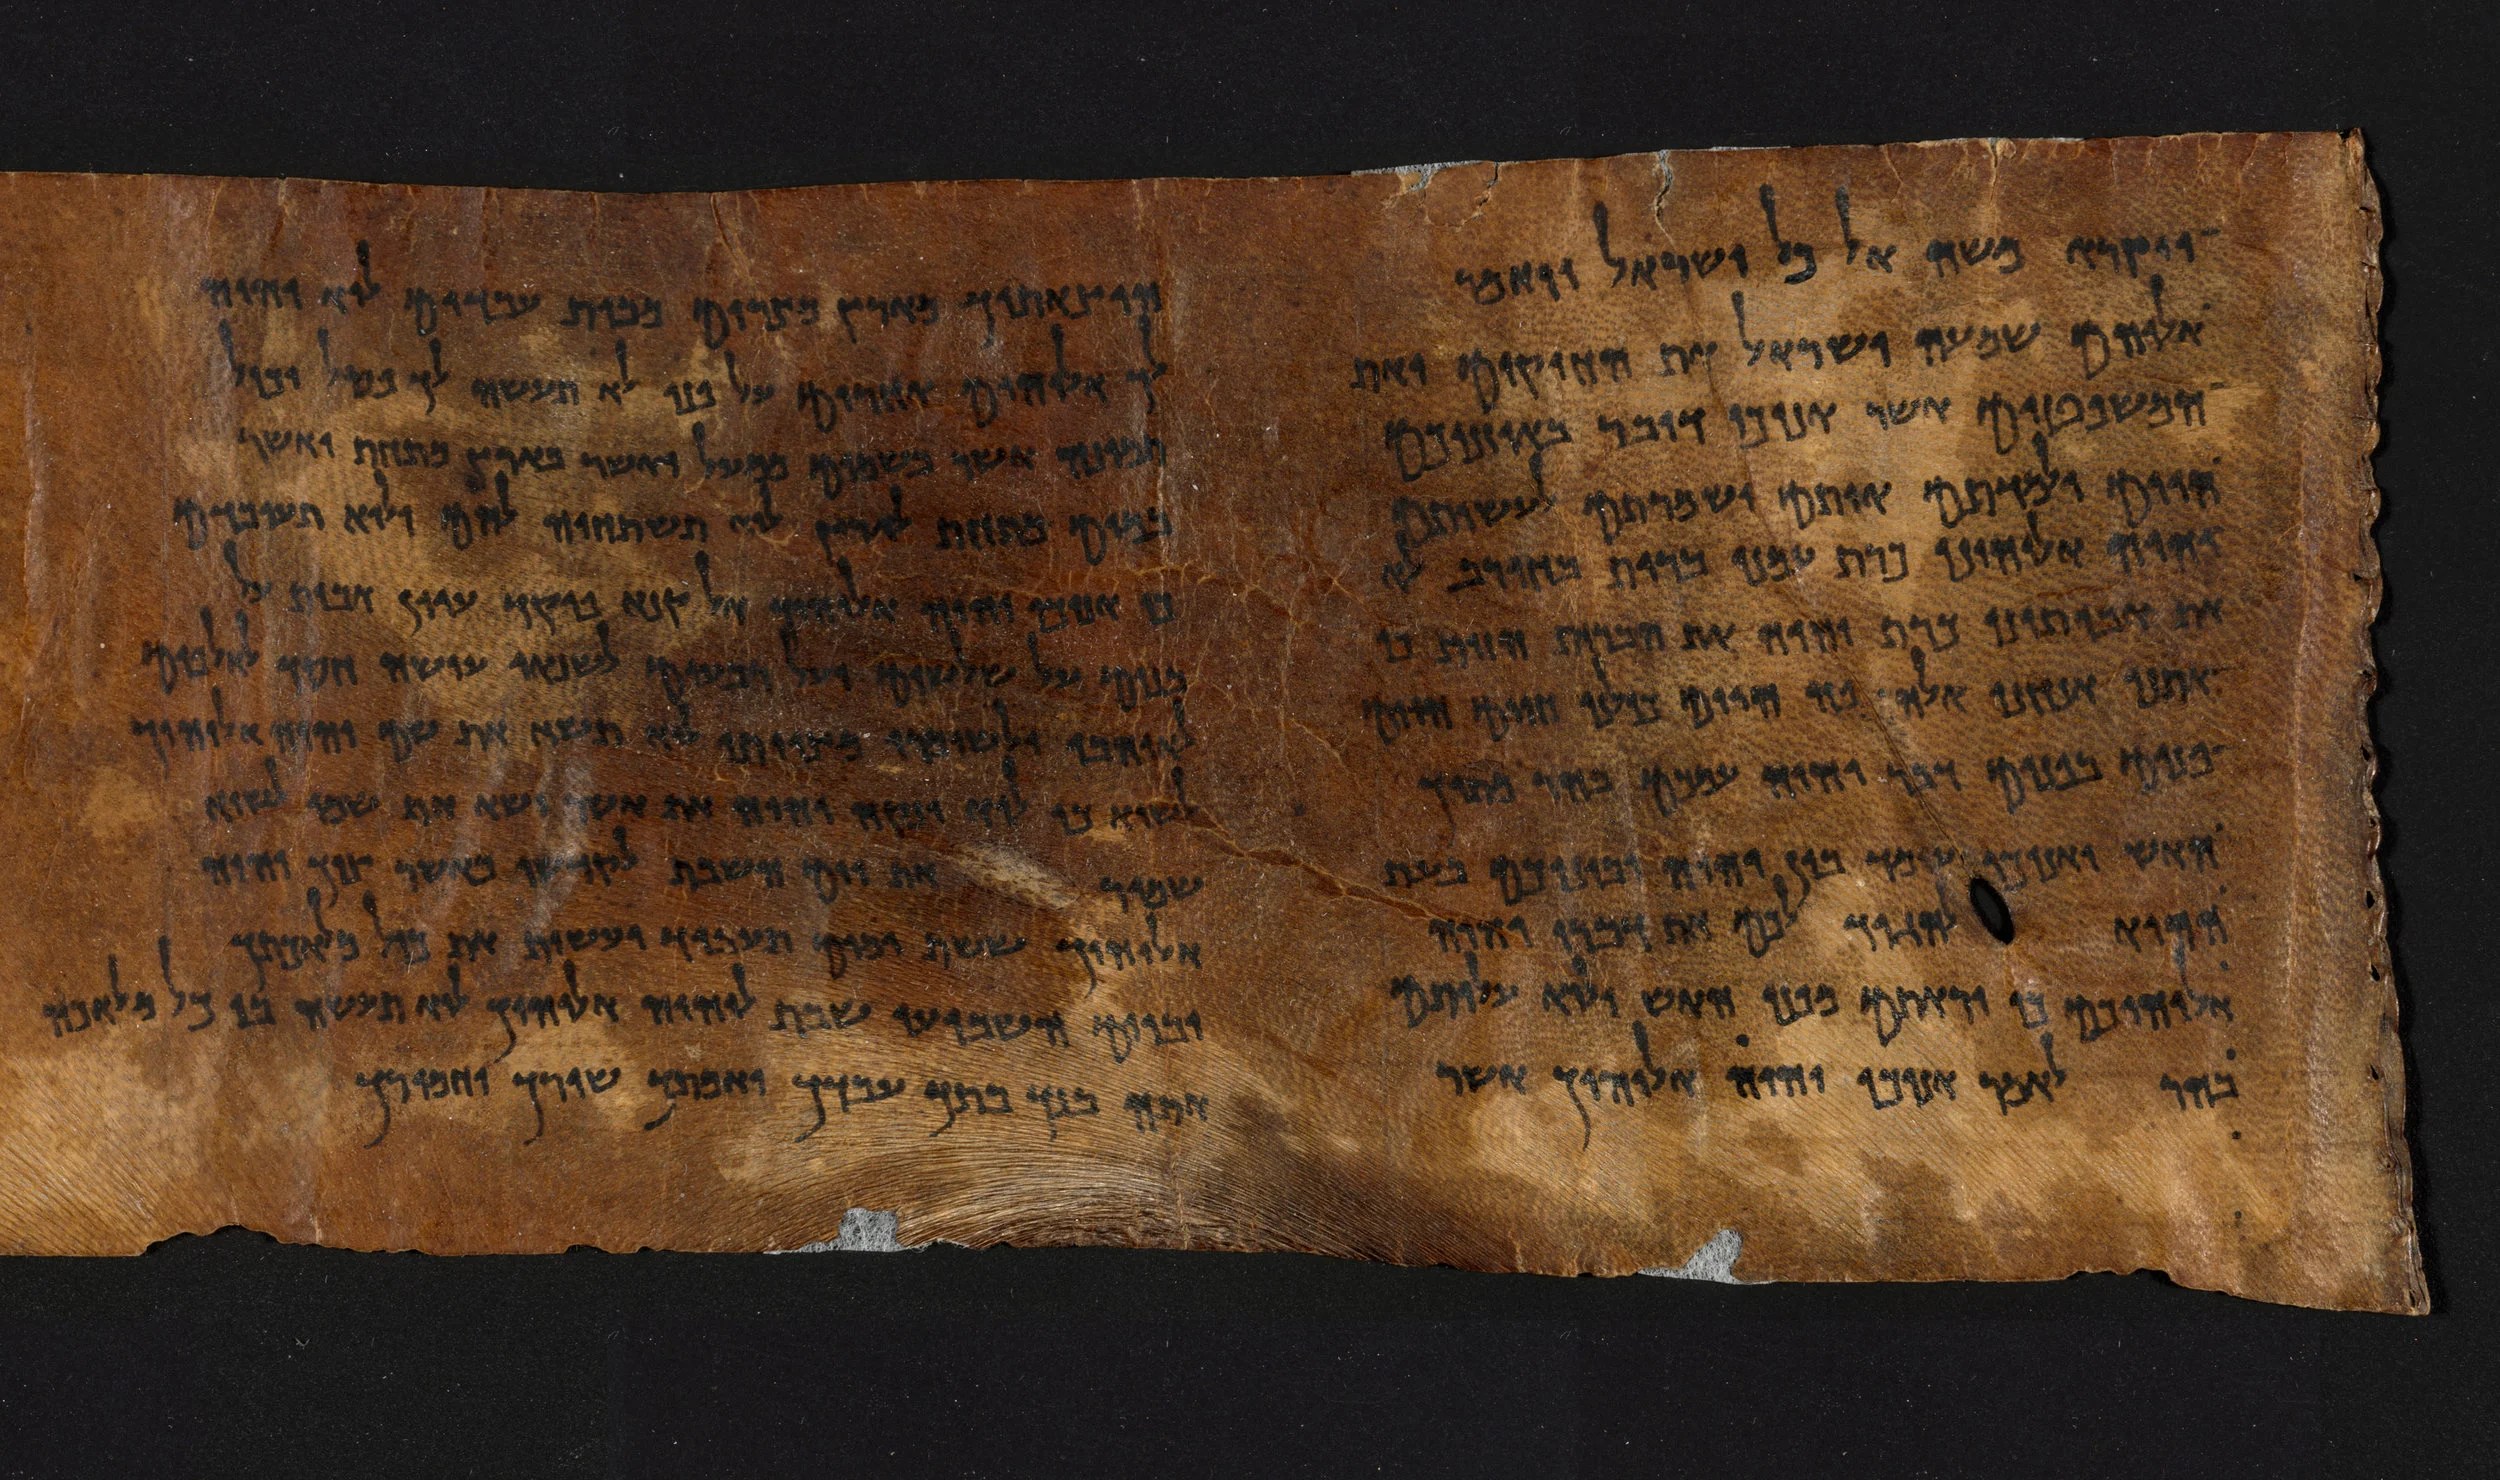 ויקרא משה אל כל ישראל ויאמר
אליהם שמעה ישראל את החוקים ואת
המשפטים אשר אנוכי דובר באוזניכם
היום ולמדתם אותם ושמרתם לעשותם
יהוה אלוהינו כרת עמנו ברית בחורב לוא
את אבותינו כרת יהוה את הברית הזות כי
אתנו אנחנו אלה פה היום כולנו חיים היום
פנים בפנים דבר יהוה עמכם בהר מתוך
האש ואנוכי עומד בין יהוה וביניכם בעת
ההיא להגיד לכם את דברי יהוה
אלוהיכם כי יראתם מפני האש ולוא עליתם
בהר לאמר אנוכי יהוה אלוהיך אשר
הוצאתיך מארץ מצרים מבית עבדים לוא יהיה
לך אלוהים אחרים על פני לא תעשה לך פסל וכול
תמונה אשר בשמים ממעל ואשר בארץ מתחת ואשר
במים מתחת לארץ לוא תשתחוה להם ולוא תעובדם
כי אנוכי יהוה אלוהיך אל קנא פוקד עוון אבות על
בנים על שלשים ועל רבעים לשנאי עושה חסד לאלפים
לאוהבי ולשומרי מצוותי לוא תשא את שם יהוה אלוהיך
לשוא כי לוא ינקה יהוה את אשר ישא את שמו לשוא
שמור את יום השבת לקדשו כאשר צוך יהוה
אלוהיך ששת ימים תעבוד ועשית את כול מלאכתך
וביום השביעי שבת ליהוה אלוהיך לוא תעשה בו כל מלאכה
אתה בנך בתך עבדך ואמתך שורך וחמורך